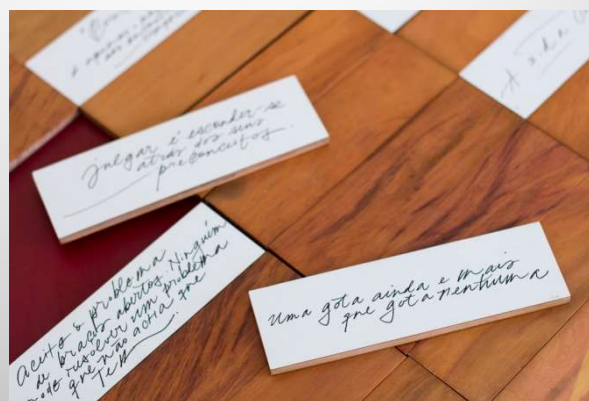 julgar é esconder-se
atrás dos seus
preconceitos.
Aceito o problema
de braços abertos. Ninguém
pode resolver um problema
que não acha que
Tem
Uma gota ainda e mais
que gota nenhuma
A vida